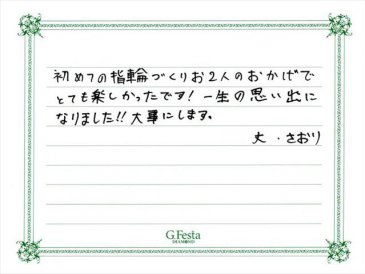 初めての指輪づくりお2人のおかげで
とても楽しかったです!一生の思い出に
なりました!!大事にします。
丈・さおり
G.Festa
DIAMOND